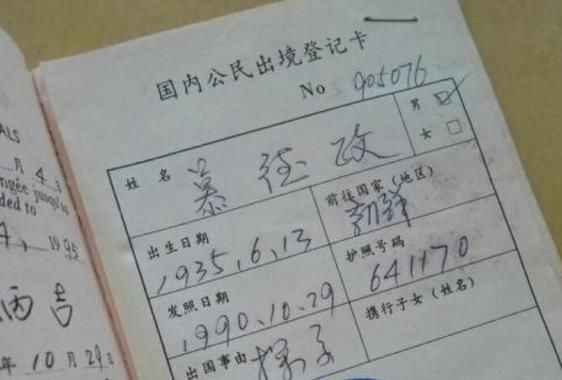 ALS
月 4 3
ngée jusqu'au
ded to
4, 1995
丙 吉
年 10 月 29 日
国内公民出境登记卡
No 905076
姓 名 慕 德 政 男 ☑
女 □
出生日期 前往国家（地区）
1935.6.13
发照日期 护照号码
1990.10.29 641170
出国事由 探子 携行子女（姓名）